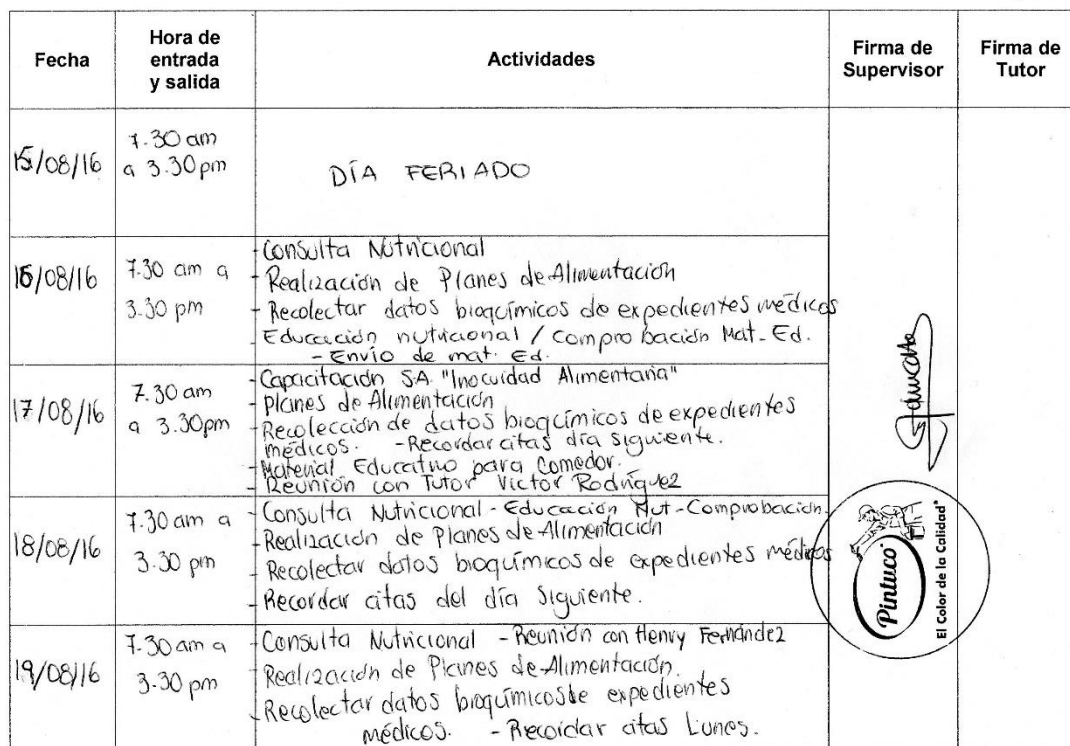 Fecha
Hora de
entrada
y salida
Actividades
Firma de
Supervisor
Firma de
Tutor
15/08/16
7.30 am
a 3.30 pm
DÍA FERIADO
16/08/16
7.30 am a
3.30 pm
- Consulta Nutricional
- Realización de Planes de Alimentación
- Recolectar datos bioquímicos de expedientes médicos
- Educación nutricional / Comprobación Mat. Ed.
- Envío de mat. Ed.
17/08/16
7.30 am
a 3.30pm
- Capacitación S.A. "Inocuidad Alimentaria"
- Planes de Alimentación
- Recolección de datos bioquímicos de expedientes
médicos. - Recordar citas día siguiente.
- Material Educativo para Comedor.
- Reunión con Tutor Victor Rodríguez
18/08/16
7.30 am a
3.30 pm
- Consulta Nutricional - Educación Nut - Comprobación.
- Realización de Planes de Alimentación
- Recolectar datos bioquímicos de expedientes médicos
- Recordar citas del día siguiente.
19/08/16
7.30 am a
3.30 pm
- Consulta Nutricional - Reunión con Henry Fernández
- Realización de Planes de Alimentación.
- Recolectar datos bioquímicos de expedientes
médicos. - Recordar citas Lunes.
Pintuco
El Color de la Calidad